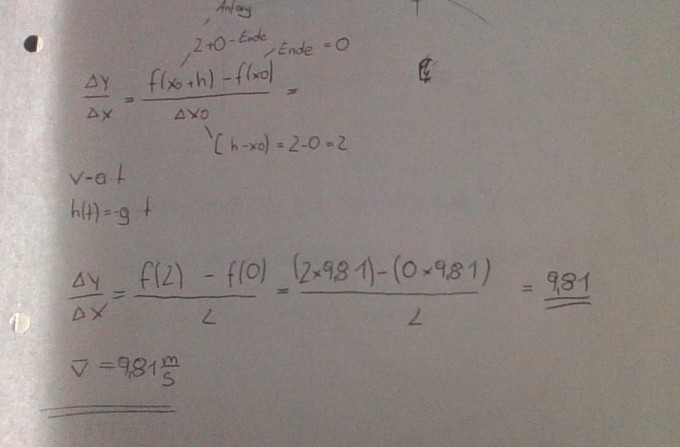 Anfang
2+0-Ende
Ende = 0
ΔY/ΔX = f(x0+h) - f(x0) / Δx0 =
(h-x0) = 2-0 = 2
v=a t
h(t)=-g t
ΔY/ΔX = f(2) - f(0) / 2 = (2×9,81)-(0×9,81) / 2 = 9,81
v̅ = 9,81 m/s